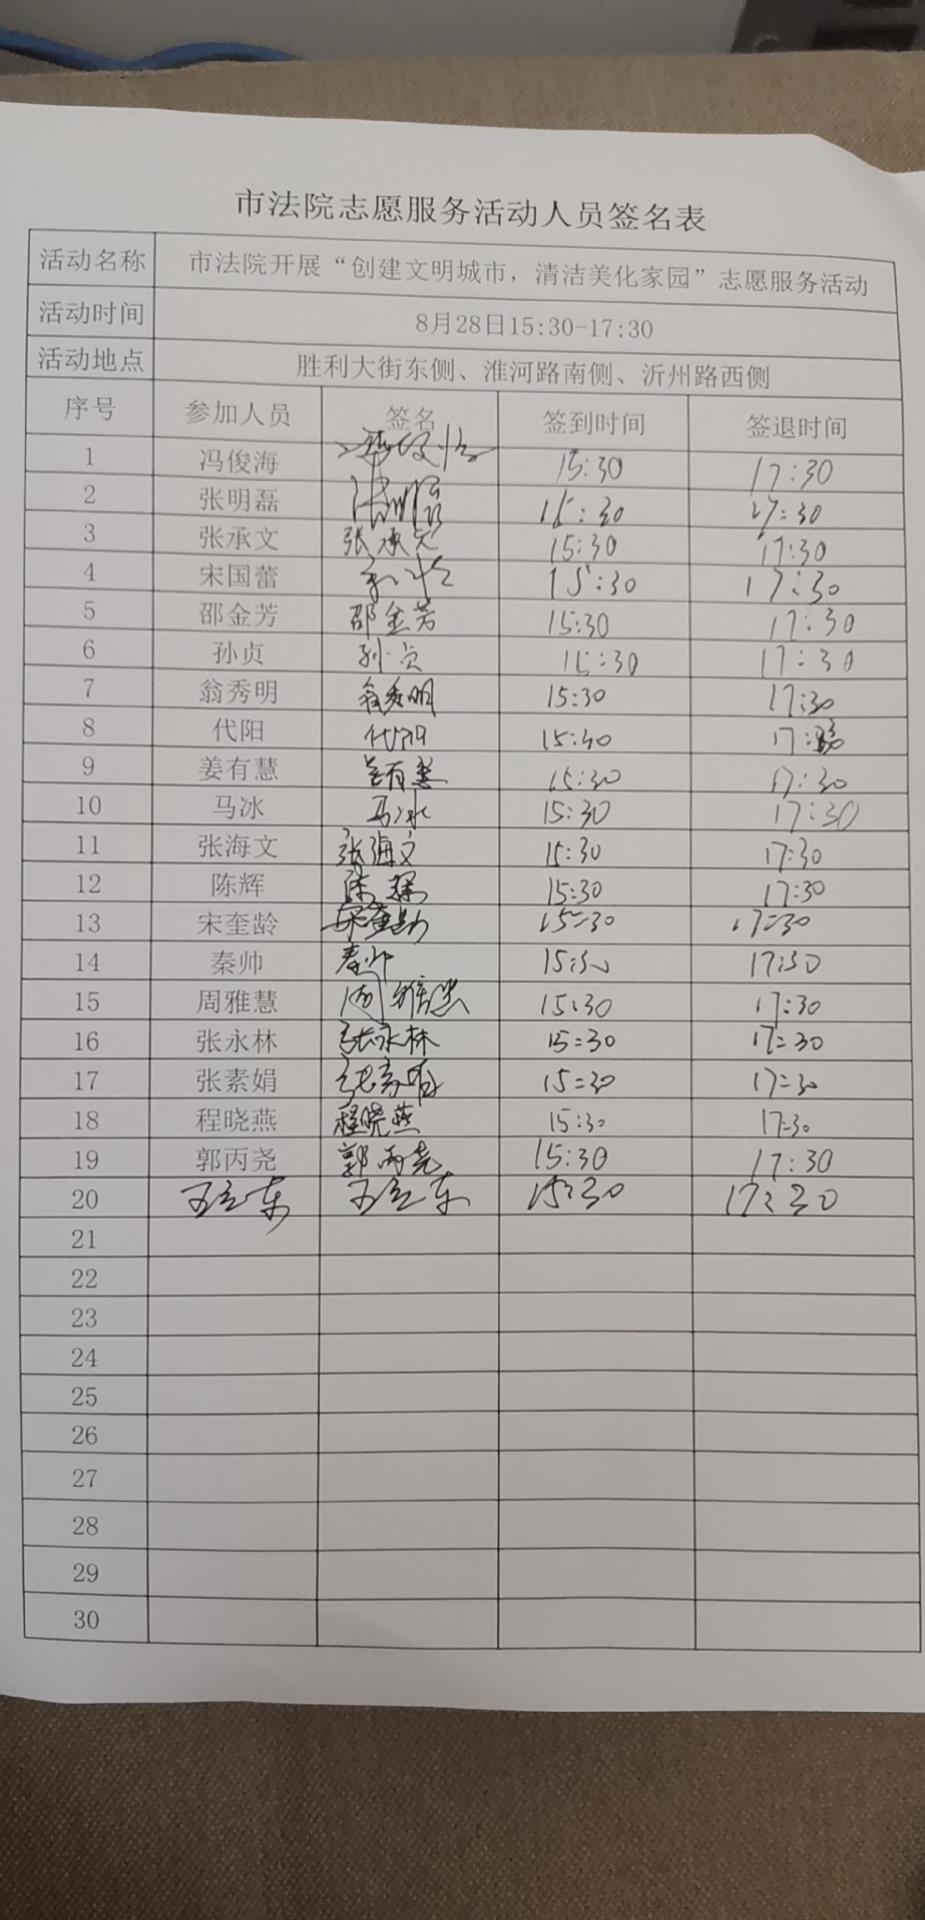 市法院志愿服务活动人员签名表
活动名称 市法院开展“创建文明城市，清洁美化家园”志愿服务活动
活动时间 8月28日15:30-17:30
活动地点 胜利大街东侧、淮河路南侧、沂州路西侧
序号 参加人员 签名 签到时间 签退时间
1 冯俊海 15:30 17:30
2 张明磊 15:30 17:30
3 张承文 张承文 15:30 17:30
4 宋国蕾 15:30 17:30
5 邵金芳 邵金芳 15:30 17:30
6 孙贞 孙贞 15:30 17:30
7 翁秀明 翁秀明 15:30 17:30
8 代阳 代阳 15:30 17:30
9 姜有慧 姜有慧 15:30 17:30
10 马冰 马冰 15:30 17:30
11 张海文 张海文 15:30 17:30
12 陈辉 陈辉 15:30 17:30
13 宋奎龄 15:30 17:30
14 秦帅 秦帅 15:30 17:30
15 周雅慧 周雅慧 15:30 17:30
16 张永林 张永林 15:30 17:30
17 张素娟 张素娟 15:30 17:30
18 程晓燕 程晓燕 15:30 17:30
19 郭丙尧 郭丙尧 15:30 17:30
20 15:30 17:30
21
22
23
24
25
26
27
28
29
30